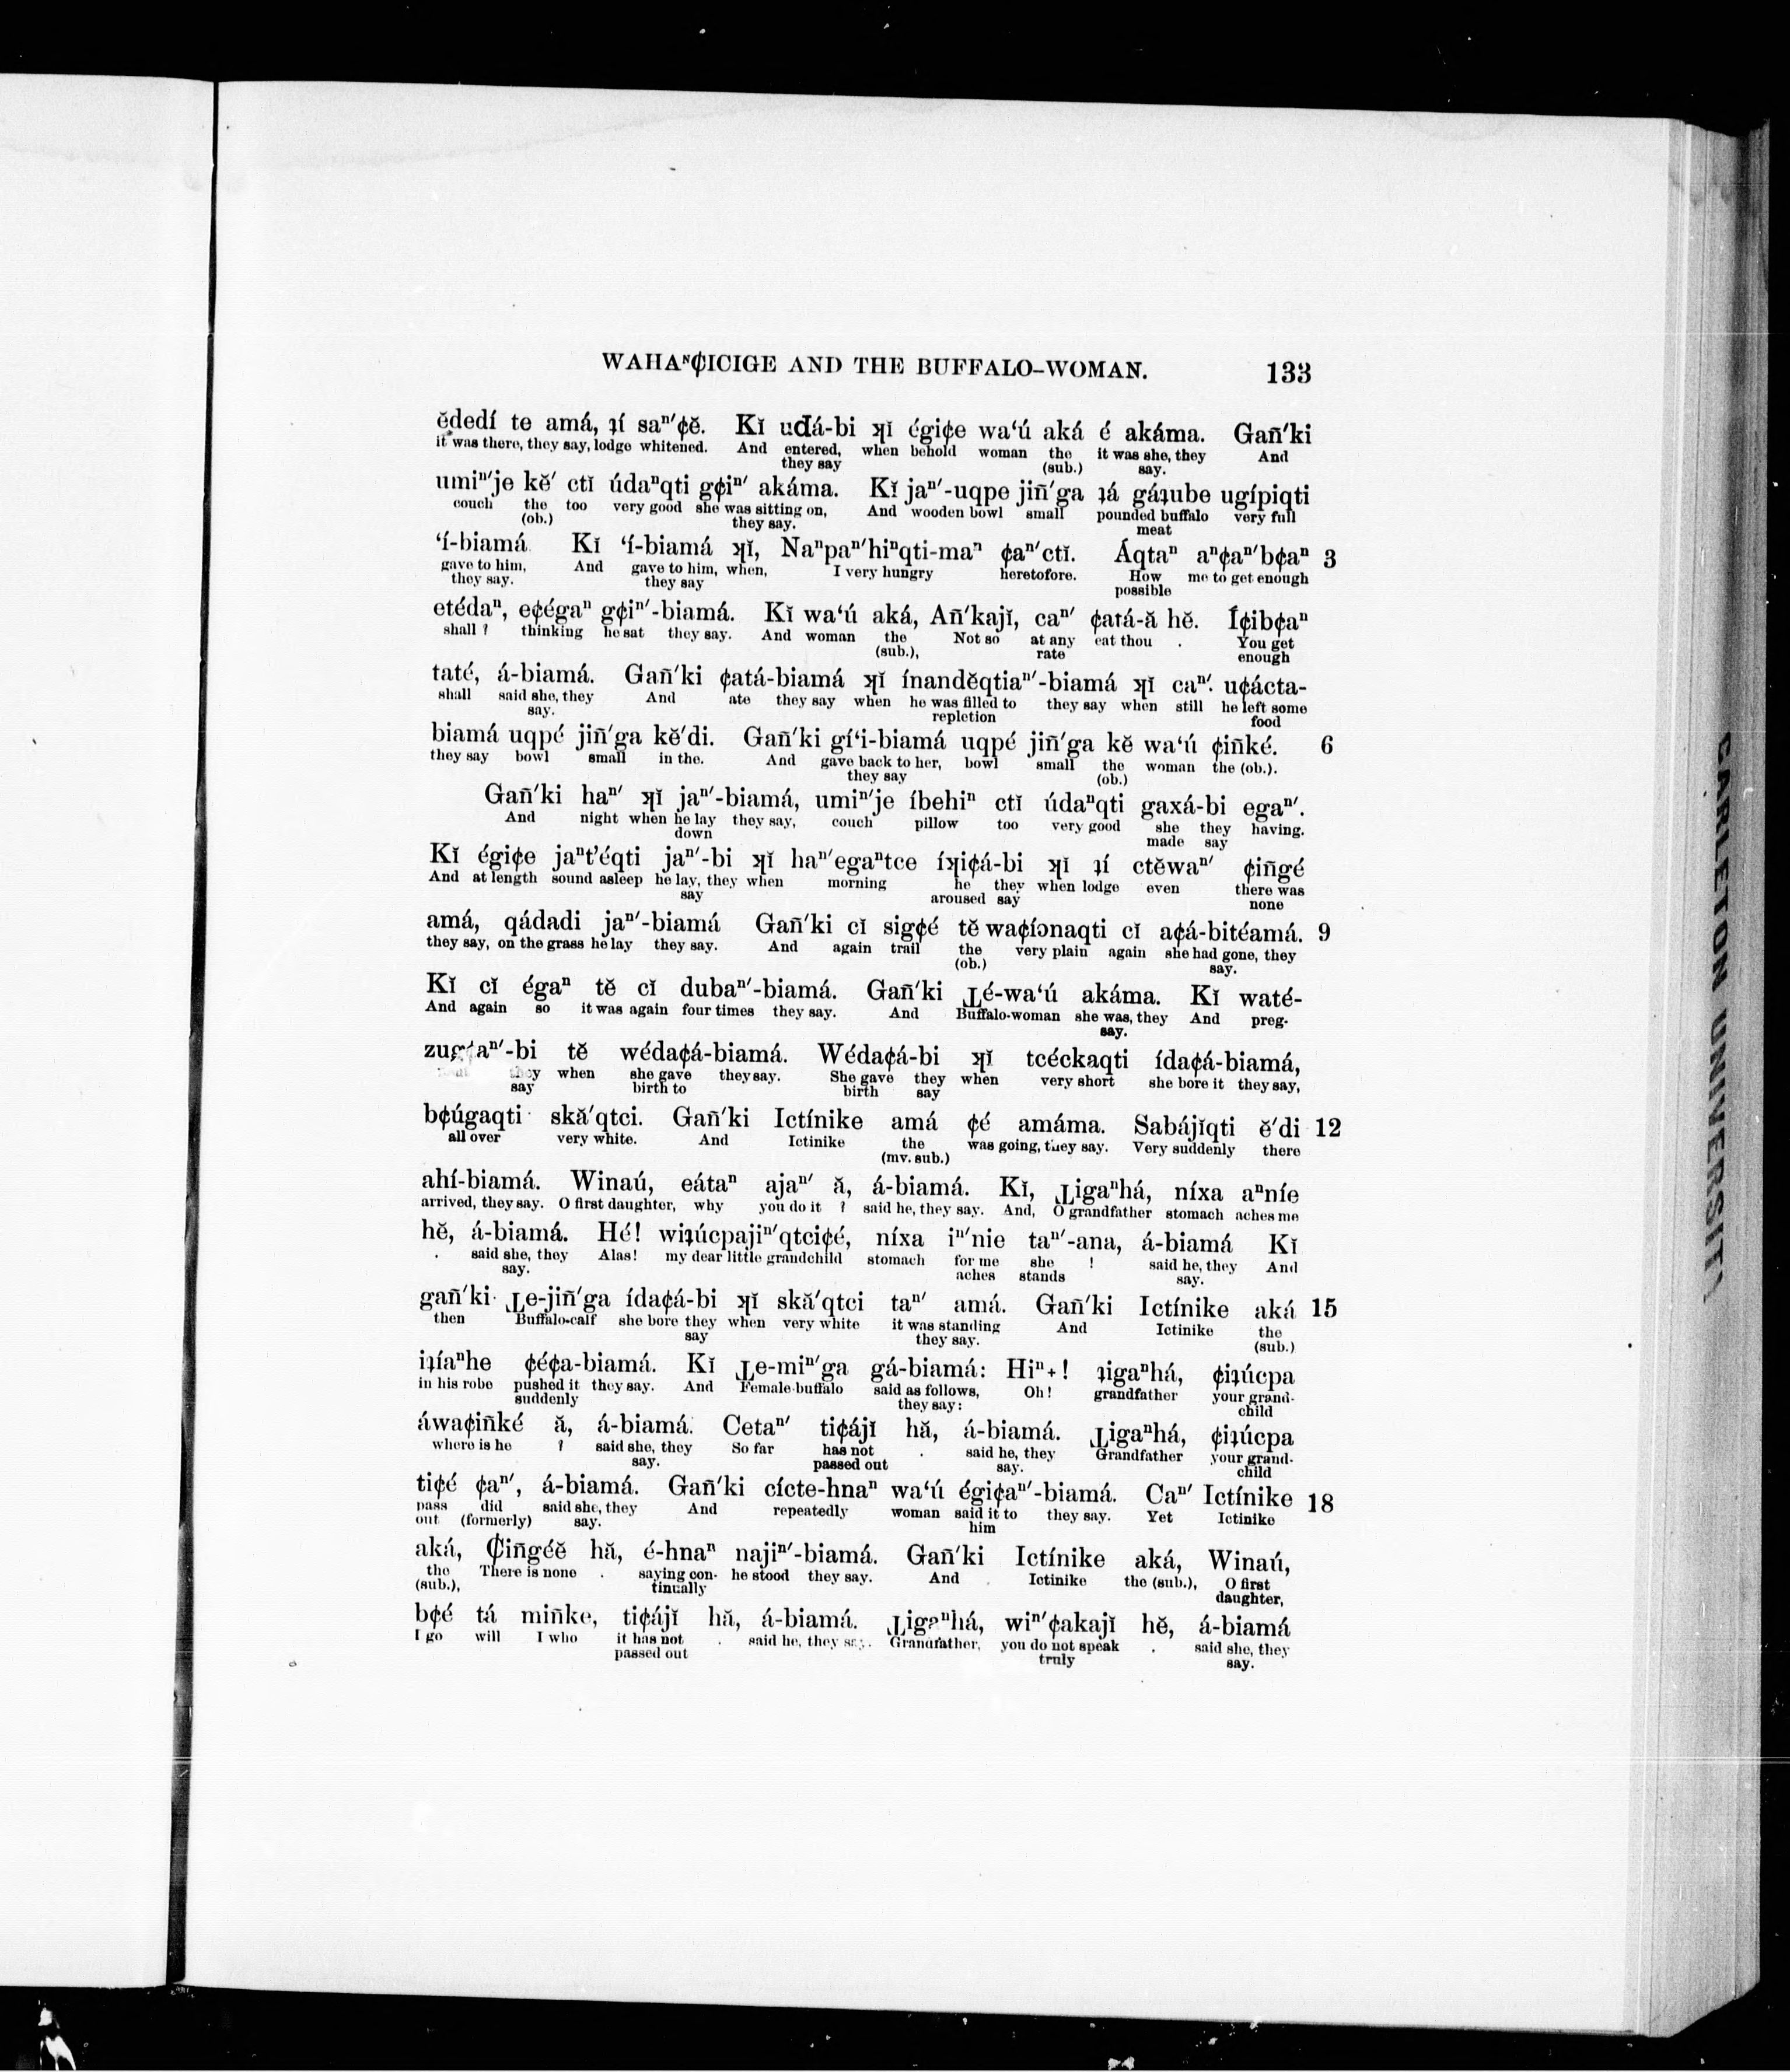 WAHAⁿ¢ICIGE AND THE BUFFALO-WOMAN. 133
ĕdedí te amá, ʇí saⁿ′¢ĕ. Kĭ uđá-bi ʞĭ égi¢e wa‘ú aká é akáma. Gañ′ki
it was there, they say, lodge whitened. And entered, when behold woman the it was she, they And
they say (sub.) say.
umiⁿ′je kĕ′ ctĭ údaⁿqti g¢iⁿ′ akáma. Kĭ jaⁿ′-uqpe jiñ′ga ʇá gáʇube ugípiqti
couch the too very good she was sitting on, And wooden bowl small pounded buffalo very full
(ob.) they say. meat
‘í-biamá. Kĭ ‘í-biamá ʞĭ, Naⁿpaⁿ′hiⁿqti-maⁿ ¢aⁿ′ctĭ. Áqtaⁿ aⁿ¢aⁿ′b¢aⁿ 3
gave to him, And gave to him, when, I very hungry heretofore. How me to get enough
they say. they say possible
etédaⁿ, e¢égaⁿ g¢iⁿ′-biamá. Kĭ wa‘ú aká, Añ′kajĭ, caⁿ′ ¢atá-ă hĕ. Í¢ib¢aⁿ
shall ? thinking he sat they say. And woman the Not so at any eat thou . You get
(sub.), rate enough
taté, á-biamá. Gañ′ki ¢atá-biamá ʞĭ ínandĕqtiaⁿ′-biamá ʞĭ caⁿ′. u¢ácta-
shall said she, they And ate they say when he was filled to they say when still he left some
say. repletion food
biamá uqpé jiñ′ga kĕ′di. Gañ′ki gí‘i-biamá uqpé jiñ′ga kĕ wa‘ú ¢iñké. 6
they say bowl small in the. And gave back to her, bowl small the woman the (ob.).
they say (ob.)
Gañ′ki haⁿ′ ʞĭ jaⁿ′-biamá, umiⁿ′je íbehiⁿ ctĭ údaⁿqti gaxá-bi egaⁿ′.
And night when he lay they say, couch pillow too very good she they having.
down made say
Kĭ égi¢e jaⁿt’éqti jaⁿ′-bi ʞĭ haⁿ′egaⁿtce íʞi¢á-bi ʞĭ ʇí ctĕwaⁿ′ ¢iñgé
And at length sound asleep he lay, they when morning he they when lodge even there was
say aroused say none
amá, qádadi jaⁿ′-biamá Gañ′ki cĭ sig¢é tĕ wa¢íɔnaqti cĭ a¢á-bitéamá. 9
they say, on the grass he lay they say. And again trail the very plain again she had gone, they
(ob.) say.
Kĭ cĭ égaⁿ tĕ cĭ dubaⁿ′-biamá. Gañ′ki Ʇé-wa‘ú akáma. Kĭ waté-
And again so it was again four times they say. And Buffalo-woman she was, they And preg-
say.
-bi tĕ wéda¢á-biamá. Wéda¢á-bi ʞĭ tcéckaqti ída¢á-biamá,
when she gave they say. She gave they when very short she bore it they say,
say birth to birth say
b¢úgaqti skă′qtci. Gañ′ki Ictínike amá ¢é amáma. Sabájĭqti ĕ′di 12
all over very white. And Ictinike the was going, they say. Very suddenly there
(mv. sub.)
ahí-biamá. Winaú, eátaⁿ ajaⁿ′ ă, á-biamá. Kĭ, Ʇigaⁿhá, níxa aⁿníe
arrived, they say. O first daughter, why you do it ? said he, they say. And, O grandfather stomach aches me
hĕ, á-biamá. Hé! wiʇúcpajiⁿ′qtci¢é, níxa iⁿ′nie taⁿ′-ana, á-biamá Kĭ
. said she, they Alas! my dear little grandchild stomach for me she ! said he, they And
say. aches stands say.
gañ′ki Ʇe-jiñ′ga ída¢á-bi ʞĭ skă′qtci taⁿ′ amá. Gañ′ki Ictínike aká 15
then Buffalo-calf she bore they when very white it was standing And Ictinike the
say they say. (sub.)
iʇíaⁿhe ¢é¢a-biamá. Kĭ Ʇe-miⁿ′ga gá-biamá: Hiⁿ+! ʇigaⁿhá, ¢iʇúcpa
in his robe pushed it they say. And Female-buffalo said as follows, Oh! grandfather your grand-
suddenly they say: child
áwa¢iñké ă, á-biamá. Cetaⁿ′ ti¢ájĭ hă, á-biamá. Ʇigaⁿhá, ¢iʇúcpa
where is he ? said she, they So far has not . said he, they Grandfather your grand-
say. passed out say. child
ti¢é ¢aⁿ′, á-biamá. Gañ′ki cícte-hnaⁿ wa‘ú égi¢aⁿ′-biamá. Caⁿ′ Ictínike 18
pass did said she, they And repeatedly woman said it to they say. Yet Ictinike
out (formerly) say. him
aká, ₵iñgéĕ hă, é-hnaⁿ najiⁿ′-biamá. Gañ′ki Ictínike aká, Winaú,
the There is none . saying con- he stood they say. And Ictinike the (sub.), O first
(sub.), tinually daughter,
b¢é tá miñke, ti¢ájĭ hă, á-biamá. Ʇigaⁿhá, wiⁿ′¢akajĭ hĕ, á-biamá
I go will I who it has not . said he, they say. Grandfather, you do not speak . said she, they
passed out truly say.
CARLETON UNIVERSIT